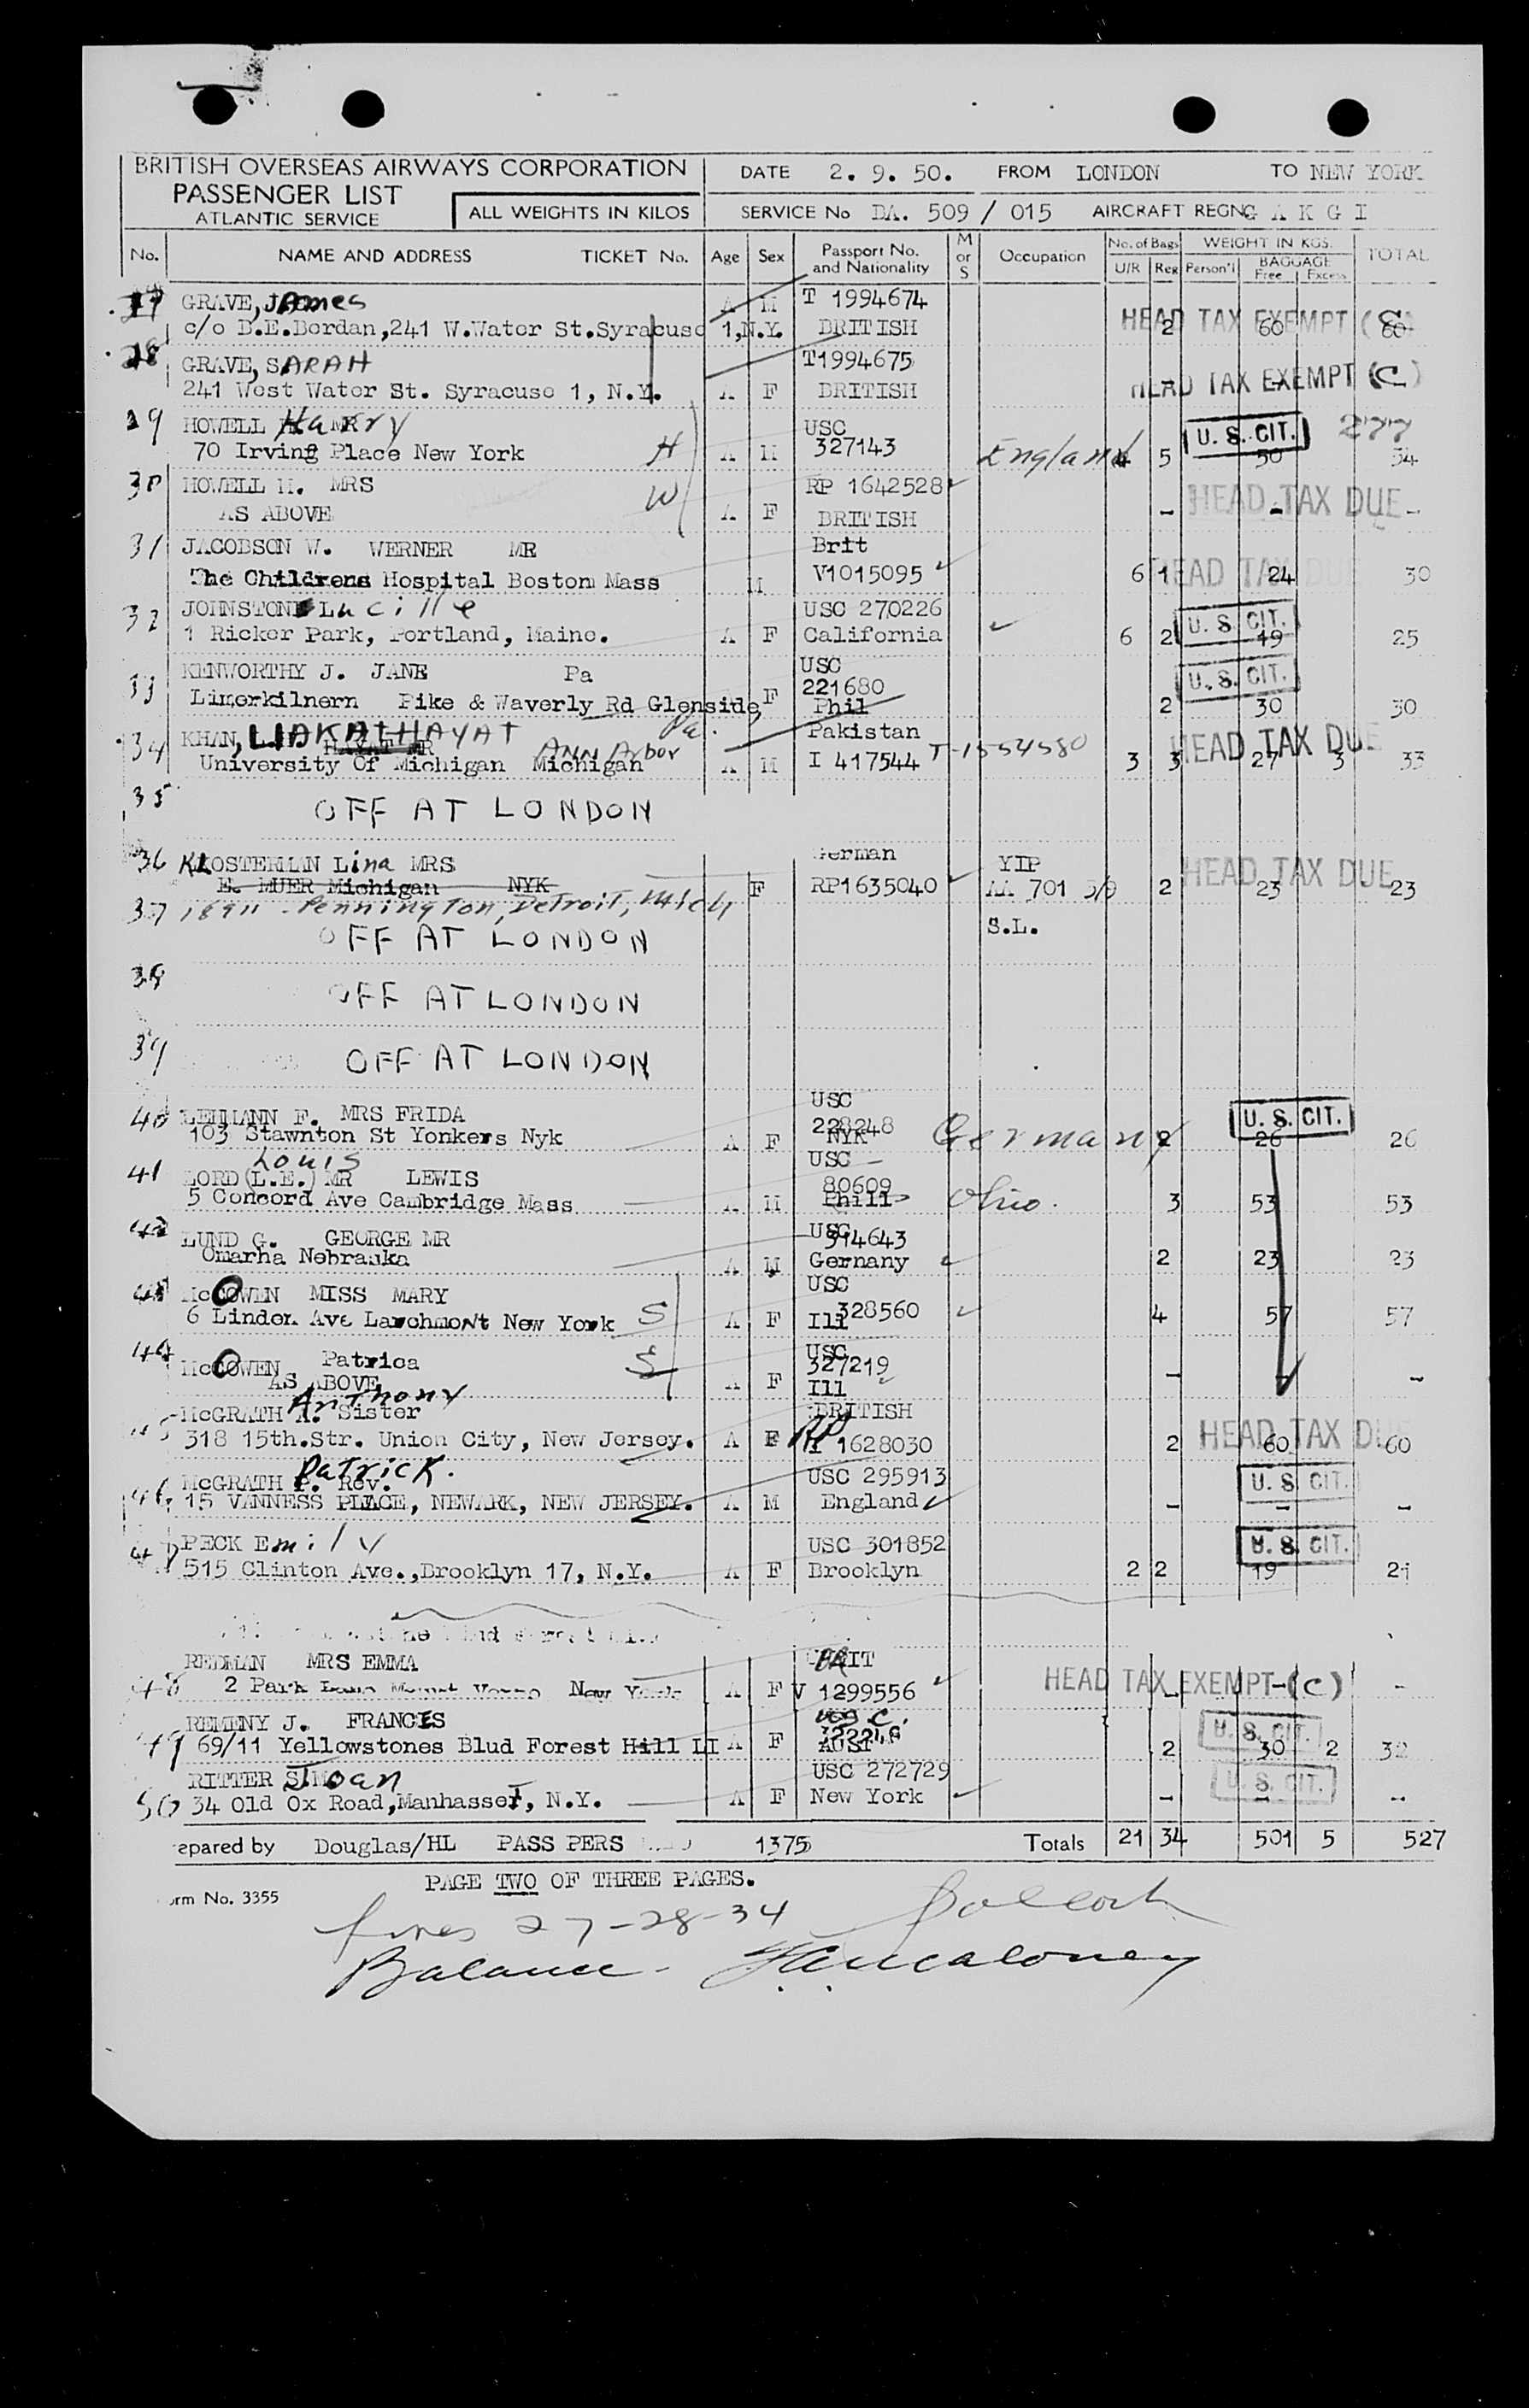 BRITISH OVERSEAS AIRWAYS CORPORATION
PASSENGER LIST
ATLANTIC SERVICE
ALL WEIGHTS IN KILOS
DATE 2. 9. 50. FROM LONDON TO NEW YORK
SERVICE No BA. 509 / 015 AIRCRAFT REGN G A K G I
No. NAME AND ADDRESS TICKET No. Age Sex Passport No. and Nationality M or S Occupation No. of Bags U/R Reg WEIGHT IN KGS. Person'l BAGGAGE Free Excess TOTAL
27 GRAVE, James A M T 1994674
c/o D.E.Bordan, 241 W.Water St.Syracuse 1, N.Y. BRITISH 2 60 60 HEAD TAX EXEMPT (C)
28 GRAVE, SARAH T1994675
241 West Water St. Syracuse 1, N.Y. A F BRITISH - - HEAD TAX EXEMPT (C)
29 HOWELL Harry MR USC U. S. CIT. 277
70 Irving Place New York H A M 327143 England 4 5 50 54
30 HOWELL M. MRS W RP 1642528
AS ABOVE A F BRITISH - - - HEAD TAX DUE
31 JACOBSON W. WERNER MR Brit
The Childrens Hospital Boston Mass M V1015095 6 1 24 30 HEAD TAX DUE
32 JOHNSTONE Lucille USC 270226 U. S. CIT.
1 Ricker Park, Portland, Maine. A F California 6 2 19 25
33 KENWORTHY J. JANE Pa USC U. S. CIT.
221680
Limerkilnern Pike & Waverly Rd Glenside, Pa. F Phil 2 30 30
34 KHAN, LIAKAT HAYAT Pakistan
University Of Michigan Michigan Ann Arbor A M I 417544 T-1554580 3 3 27 3 33 HEAD TAX DUE
35 OFF AT LONDON
36 KLOSTERMAN Lina MRS German YIP
E. MUER Michigan NYK F RP1635040 AA 701 3/9 2 23 23 HEAD TAX DUE
18911 - Pennington, Detroit, Mich
37 OFF AT LONDON S.L.
38 OFF AT LONDON
39 OFF AT LONDON
40 LEHMANN F. MRS FRIDA USC U. S. CIT.
228248
103 Stawnton St Yonkers Nyk A F NYK Germany 2 26 26
41 Louis USC
LORD (L.E.) MR LEWIS 80609
5 Concord Ave Cambridge Mass A M Phill Ohio. 3 53 53
42 LUND G. GEORGE MR USC
314643
Omarha Nebraska A M Germany 2 23 23
43 McCOWEN MISS MARY USC
6 Linden Ave Larchmont New York S A F Ill 328560 4 57 57
44 McCOWEN Patrica S USC
327219
AS ABOVE A F Ill - - -
45 McGRATH A. Anthony Sister BRITISH
318 15th.Str. Union City, New Jersey. A F RP 1628030 2 60 60 HEAD TAX DUE
46 McGRATH P. Patrick. Rev. USC 295913 U. S. CIT.
15 VANNESS PLACE, NEWARK, NEW JERSEY. A M England - - -
47 PECK Emily USC 301852 U. S. CIT.
515 Clinton Ave., Brooklyn 17, N.Y. A F Brooklyn 2 2 19 21
48 REDMAN MRS EMMA BRIT
2 Park New York A F V 1299556 - - - HEAD TAX EXEMPT (C)
49 REMENY J. FRANCES USC. U. S. CIT.
69/11 Yellowstones Blud Forest Hill LI A F AUST 2 30 2 32
50 RITTER Joan USC 272729 U. S. CIT.
34 Old Ox Road, Manhasset, N.Y. A F New York - - -
epared by Douglas/HL PASS PERS 1375 Totals 21 34 501 5 527
PAGE TWO OF THREE PAGES.
orm No. 3355
lines 27-28-34
Balance -